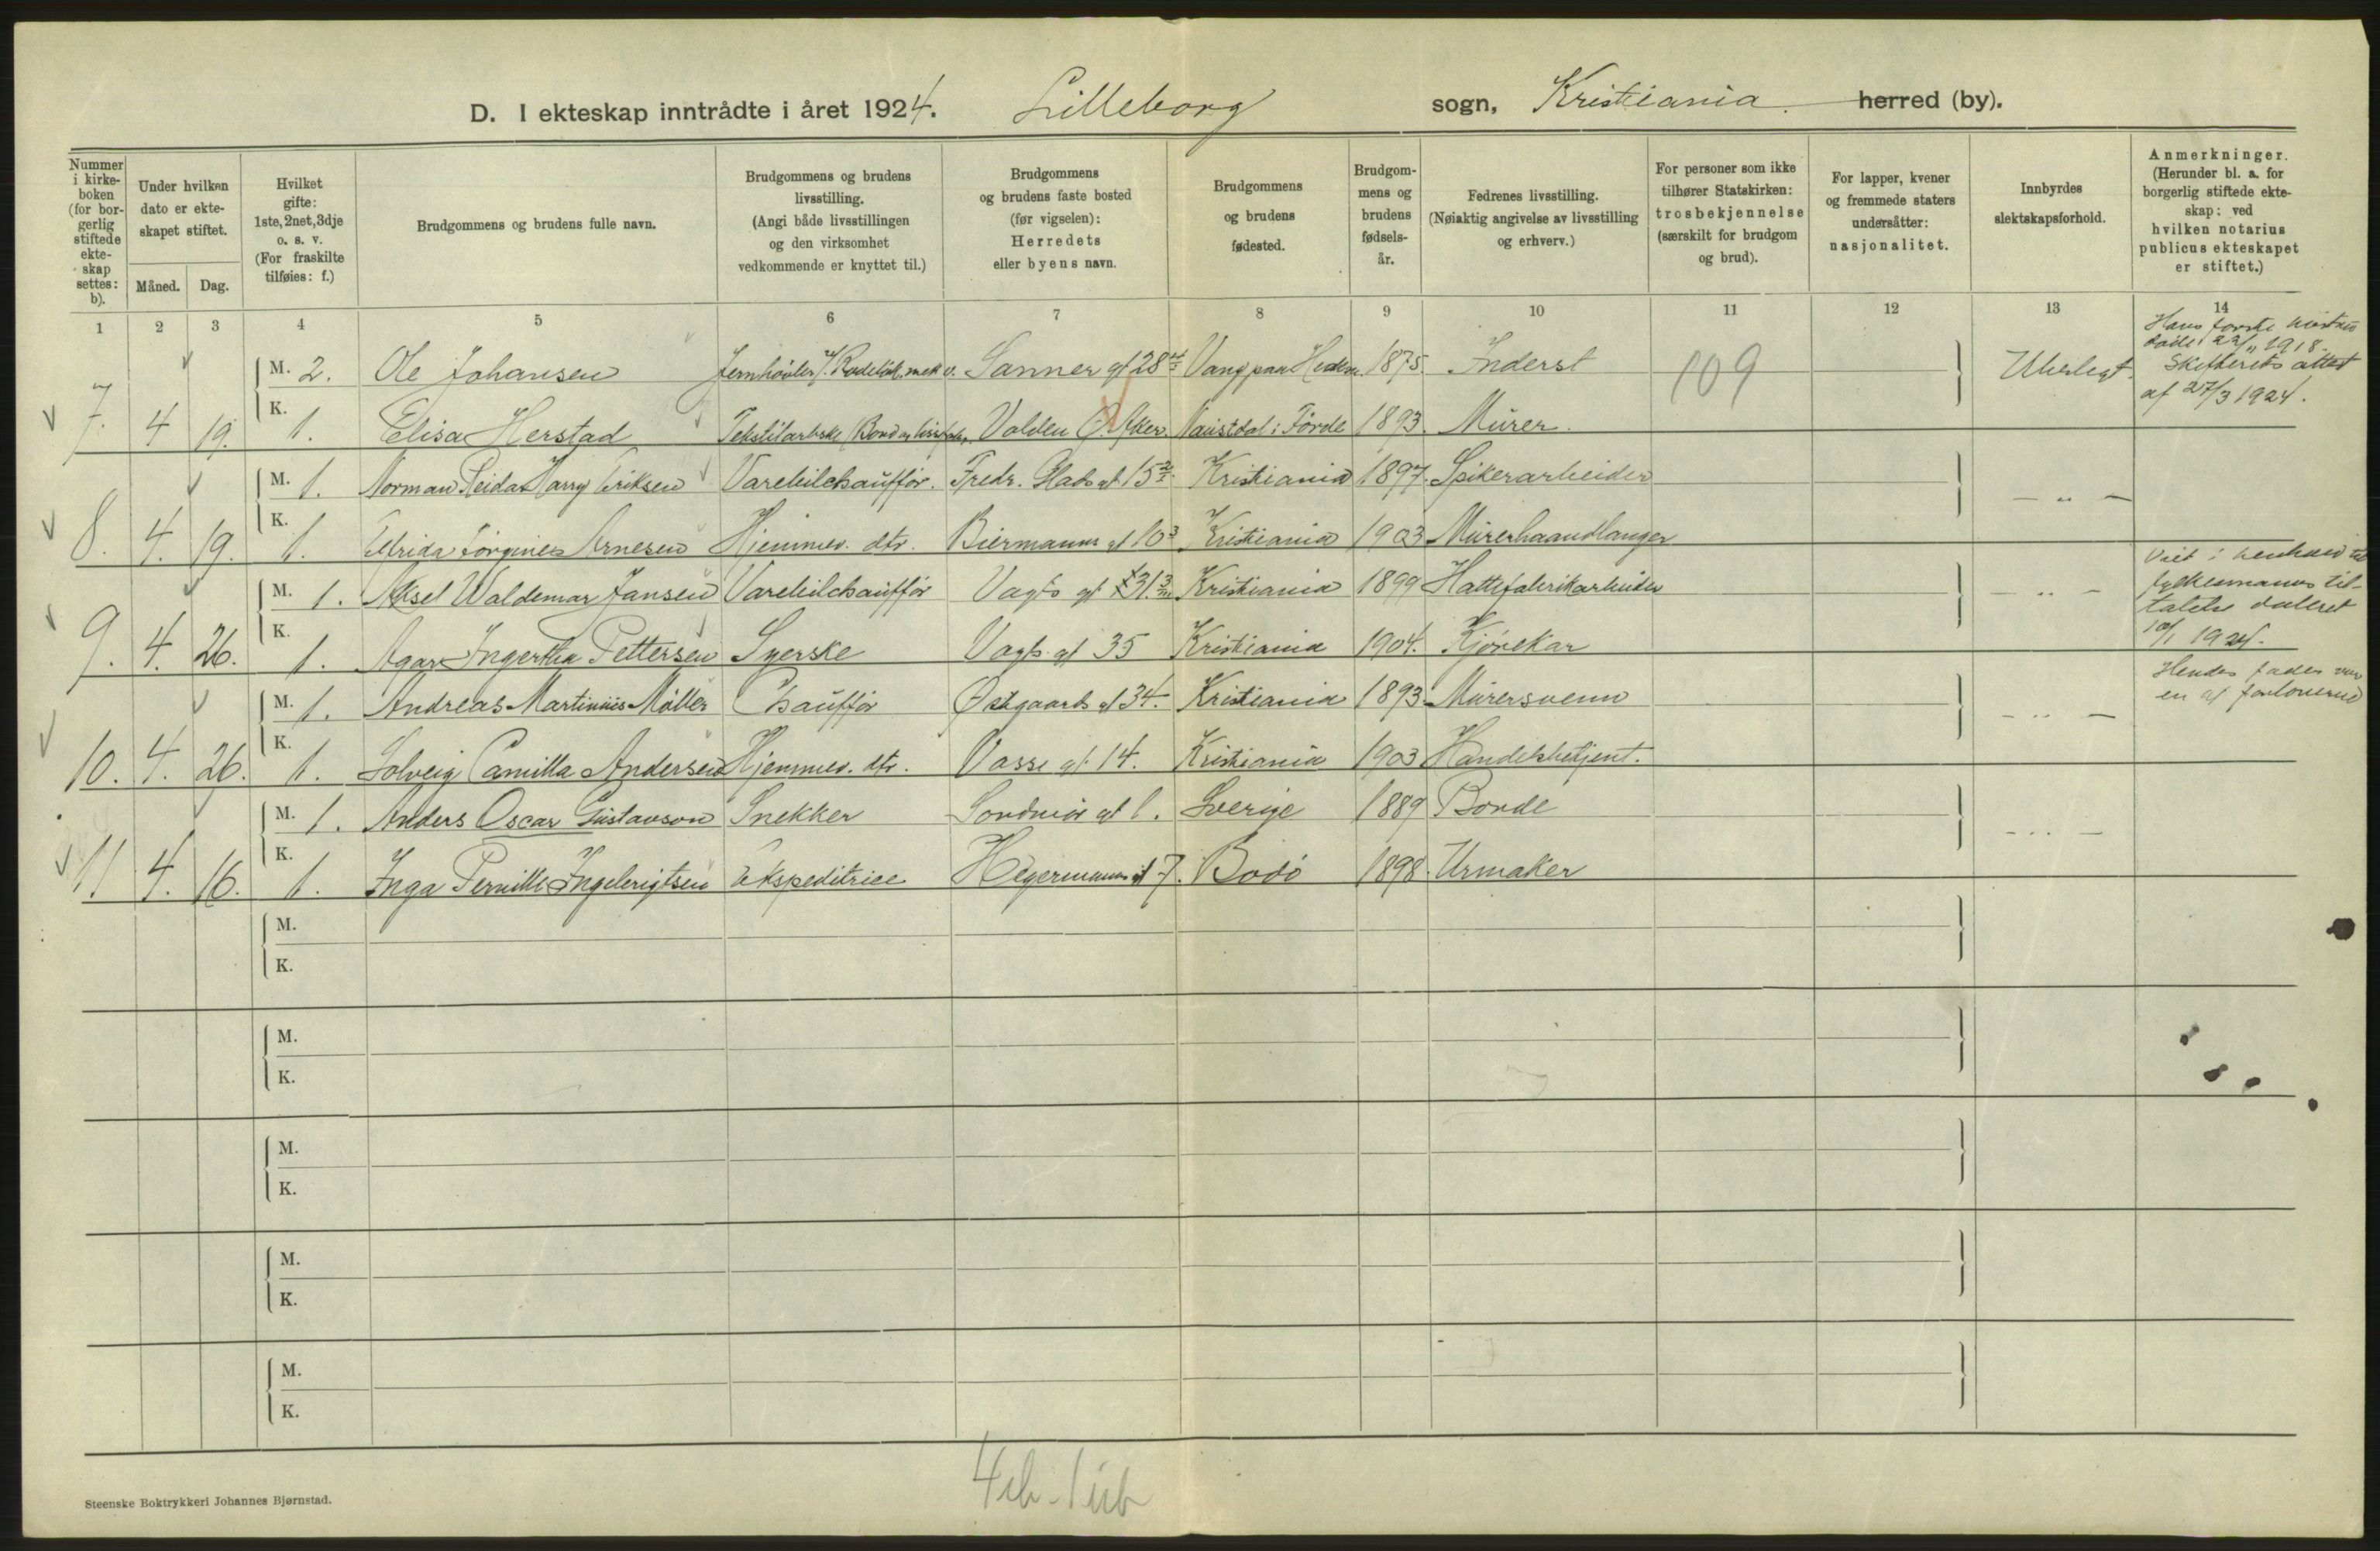 D. I ekteskap inntrådte i året 1924. Lilleborg sogn, Kristiania herred (by).
Nummer i kirkeboken (for borgerlig stiftede ekteskap settes: b).
Under hvilken dato er ekteskapet stiftet.
Måned. Dag.
Hvilket gifte: 1ste, 2net, 3dje o. s. v. (For fraskilte tilføies: f.)
Brudgommens og brudens fulle navn.
Brudgommens og brudens livsstilling. (Angi både livsstillingen og den virksomhet vedkommende er knyttet til.)
Brudgommens og brudens faste bosted (før vigselen): Herredets eller byens navn.
Brudgommens og brudens fødested.
Brudgommens og brudens fødselsår.
Fedrenes livsstilling. (Nøiaktig angivelse av livsstilling og erhverv.)
For personer som ikke tilhører Statskirken: trosbekjennelse (særskilt for brudgom og brud).
For lapper, kvener og fremmede staters undersåtter: nasjonalitet.
Innbyrdes slektskapsforhold.
Anmerkninger. (Herunder bl. a. for borgerlig stiftede ekteskap: ved hvilken notarius publicus ekteskapet er stiftet.)
1 2 3 4 5 6 7 8 9 10 11 12 13 14
M. 2. Ole Johansen Jernhøvler Sanner gt 28 Vang paa Hedem. 1875. Inderst 109 Ubeslegt.
Hans første hustru
døde 22/11 1918.
Skifterets attest
af 27/3 1924.
7. 4 19. K. 1. Elisa Herstad Volden Ø. Aker. Naustdal i Förde 1893. Murer.
M. 1. Norman Reidar Harry Eriksen Varebilchaufför. Fredr. Glads gt 15 Kristiania 1897. Spikerarbeider - " -
8. 4. 19. K. 1. Elfrida Jörgine Arnesen Hjemmev. dtr. Biermanns gt 10 Kristiania 1903 Murerhaandlanger
M. 1. Aksel Waldemar Jansen Varebilchaufför Vogts gt 31 Kristiania 1899 Hattefabrikarbeider - " -
Viet i henhold til
fylkesmanns til-
latelse dateret
10/1 1924.
9. 4. 26. K. 1. Agar Ingertha Pettersen Syerske Vogts gt 35 Kristiania 1904. Kjørekar
M. 1. Andreas Martinius Möller Chaufför Østgaards gt 34. Kristiania 1893. Murersvenn - " -
Hendes fader var
en af forloverne
10. 4. 26. K. 1. Solveig Camilla Andersen Hjemmev. dtr. Vosse gt. 14. Kristiania 1903 Handelsbetjent.
M. 1. Anders Oscar Gustavson Snekker Søndmør gt 1. Sverige 1889 Bonde - " -
11 4. 16. K. 1. Inga Pernille Ingebrigtsen Ekspeditrice Hegermanns gt 7. Bodö 1898. Urmaker
M.
K.
M.
K.
M.
K.
M.
K.
M.
K.
Steenske Boktrykkeri Johannes Bjørnstad.